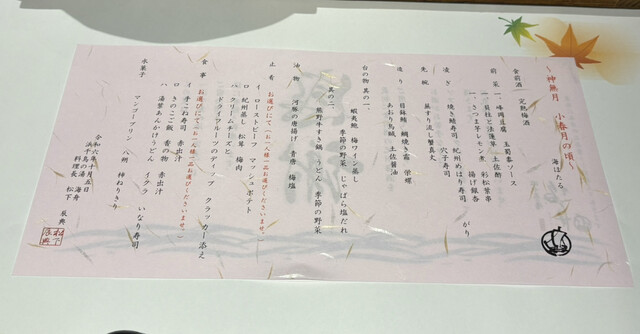 神無月　小春月の頃
海ほたる。
食前酒　完熟梅酒
前菜　一、峰岡豆腐　玉蜀黍ソース
一、貝柱と法蓮草　土佐酢　彩松葉串
一、さつま芋レモン煮　揚げ銀杏　がり
凌ぎ　焼き鯖寿司　紀州めはり寿司　穴子寿司
先椀　巣すり流し蟹真丈
造り　目鉢鮪　鯛焼き霜　栄螺
あおり烏賊　土佐醤油
台の物　其の一、
蝦夷鮑　梅ワイン蒸し
季節の野菜　じゃばら塩だれ
其の二、
熊野牛すき鍋　うどん　季節の野菜
油物　河豚の唐揚げ　青唐　梅塩
止肴　お選びにて（お一人様一品お選びくださいませ。）
イ、ローストビーフ　マッシュポテト
ロ、紀州蒸し　松茸　梅肉
ハ、クリームチーズと
ドライフルーツのディップ　クラッカー添え
食事　お選びにて（お一人様一品お選びくださいませ。）
イ、手こね寿司　赤出汁
ロ、きのこご飯　香の物　赤出汁
ハ、湯葉あんかけうどん　イクラ　いなり寿司
水菓子　マンゴープリン　八朔　柿ねりきり
令和六年十月五日
浜千鳥の湯　海舟
料理長　松下　辰典